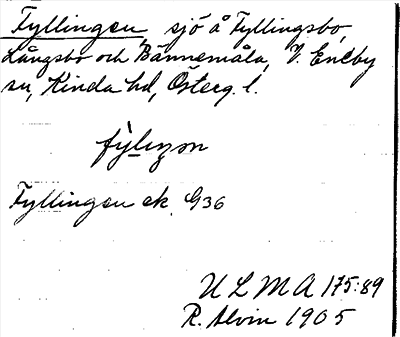 Fyllingen, sjö å Fyllingsbo,
Långsbo och Bännemåla, V. Eneby
sn, Kinda hd, Österg. l.
fỳlıŋən
Fyllingen ek. G36
ULMA 175:89
R. Alvin 1905